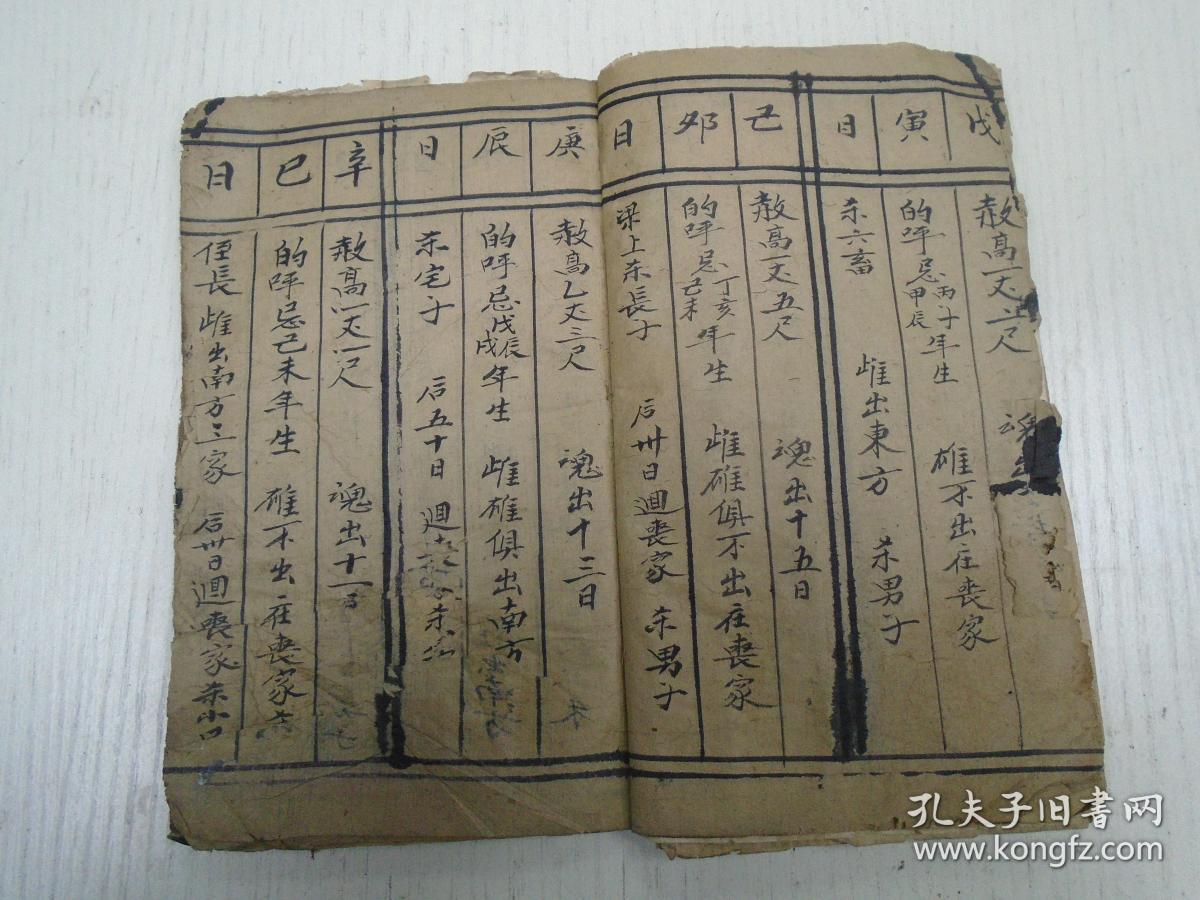 戊寅日
煞高一丈二尺 魂
的呼忌丙子甲辰年生 雄不出在喪家
杀六畜 雌出東方 杀男子
己卯日
煞高一丈五尺 魂出十五日
的呼忌丁亥己未年生 雌雄俱不出在喪家
梁上杀長子 后卅日迴喪家 杀男子
庚辰日
煞高乙丈三尺 魂出十三日
的呼忌戊辰戌年生 雌雄俱出南方
杀宅子 后五十日 迴
辛巳日
煞高一丈一尺 魂出十一日
的呼忌己未年生 雄不出在喪家杀
侄長 雌出南方三家 后卅日迴喪家杀小口
孔夫子旧书网
www.kongfz.com